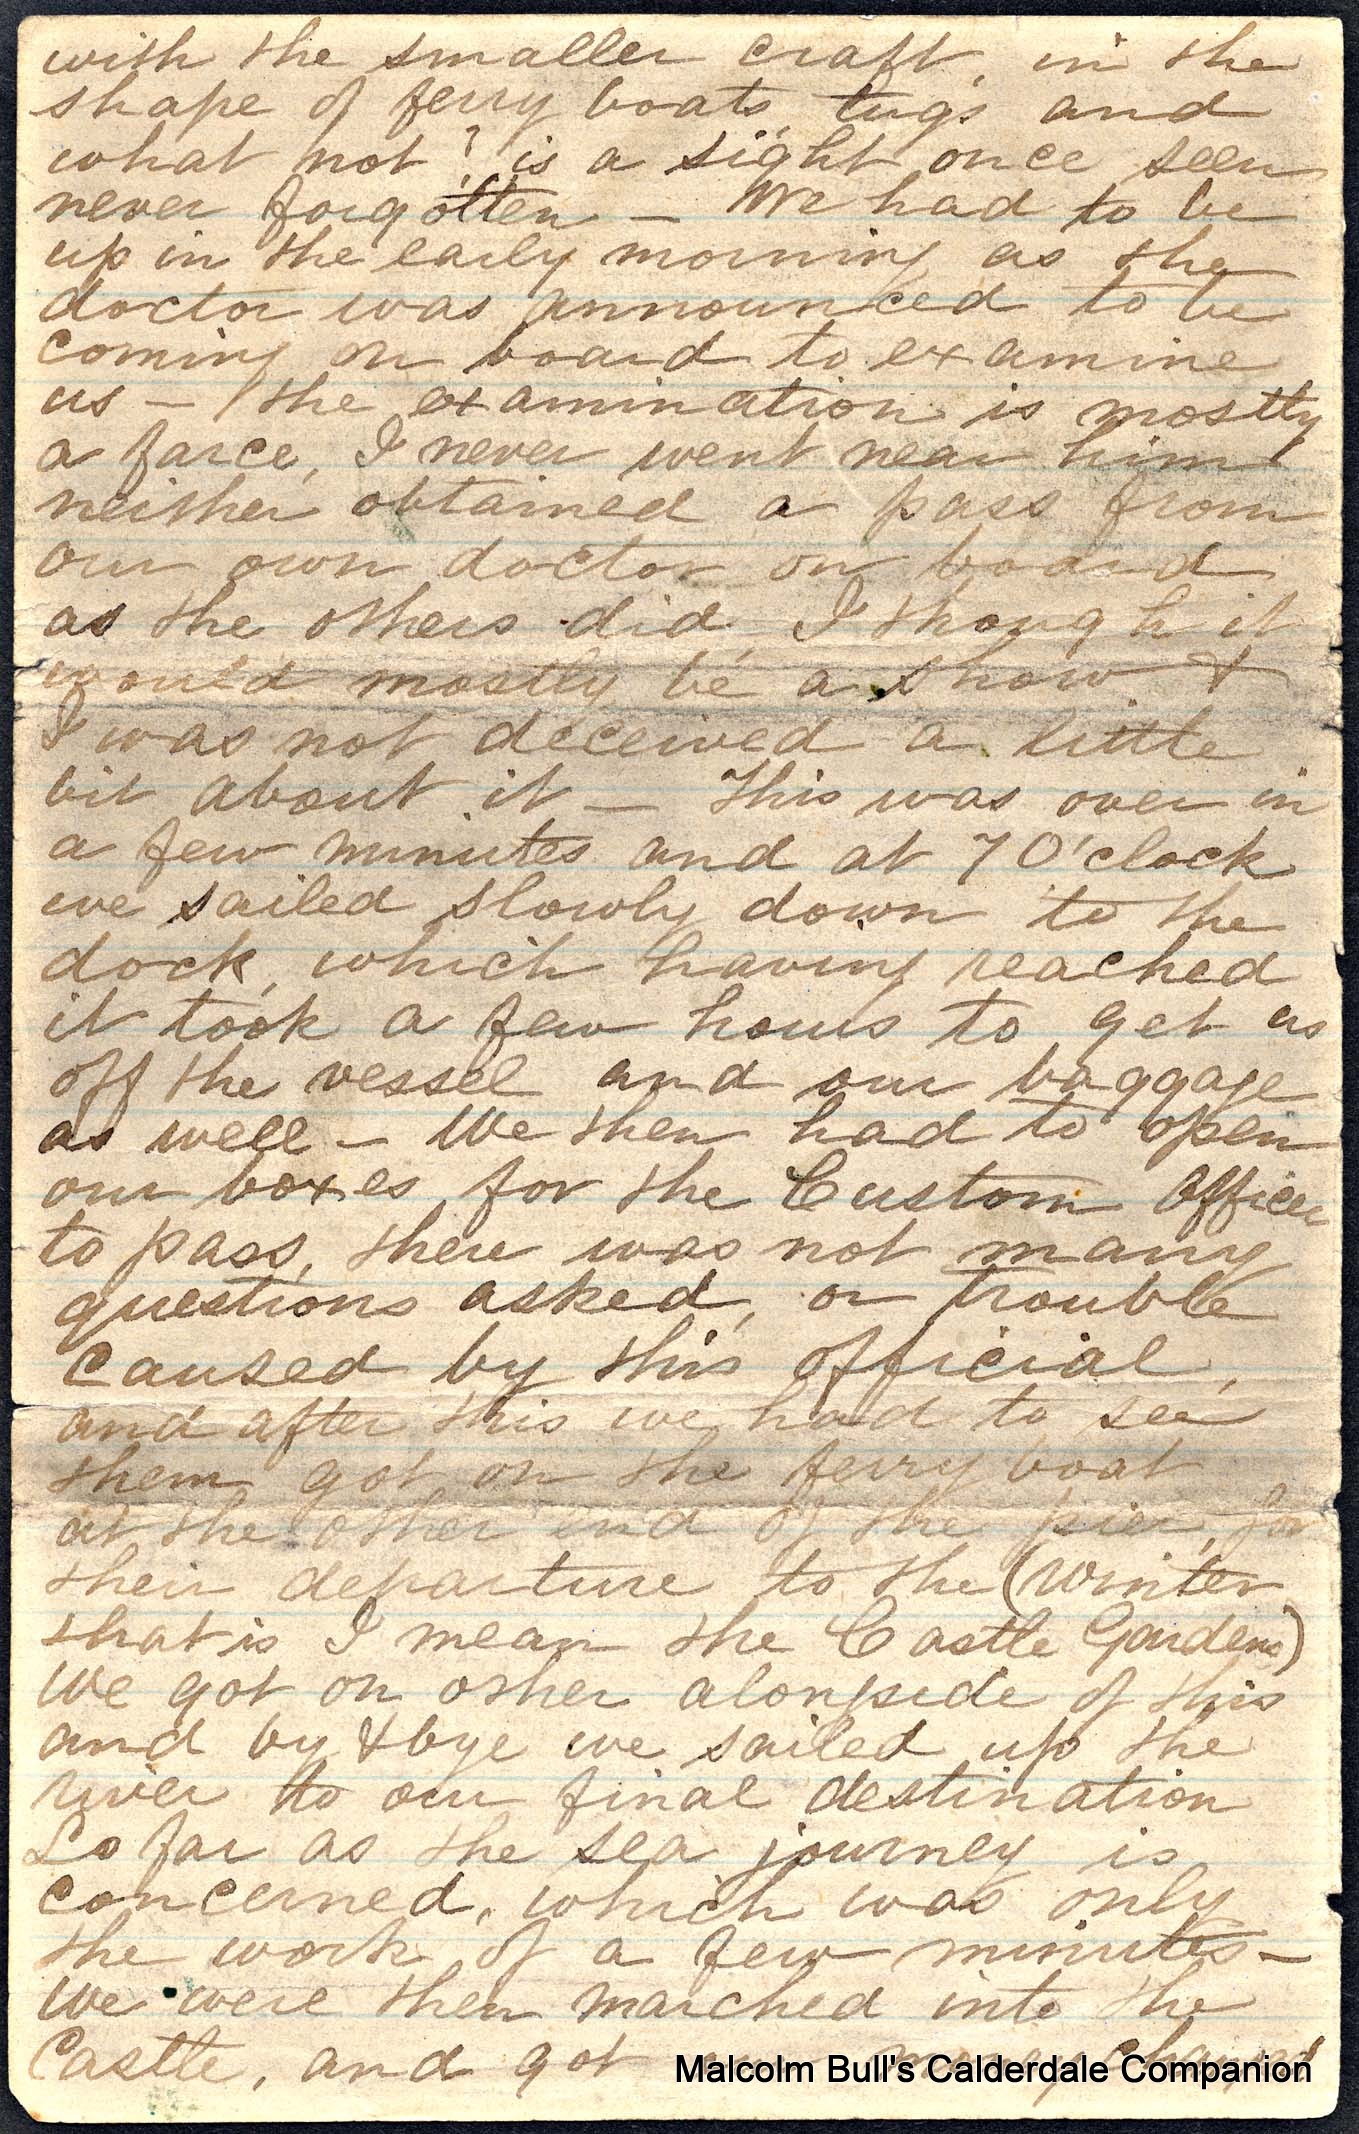 with the smaller craft, in the
shape of ferry boats, tugs and
what not? is a sight once seen
never forgotten — We had to be
up in the early morning as the
doctor was announced to be
coming on board to examine
us — the examination is mostly
a farce, I never went near him
neither obtained a pass from
our own doctor on board
as the others did, I though it
would mostly be a show &
I was not deceived a little
bit about it — This was over in
a few minutes and at 7 O'clock
we sailed slowly down to the
dock, which having reached
it took a few hours to get us
off the vessel and our baggage
as well — We then had to open
our boxes for the Custom Officer
to pass, there was not many
questions asked, or trouble
caused by this official,
and after this we had to see
them got on the ferry boat
at the other end of the pier, for
their departure to the (Winter
that is I mean the Castle Gardens)
We got on other alongside of this
and by & bye we sailed up the
river to our final destination
So far as the sea journey is
concerned, which was only
the work of a few minutes —
We were then marched into the
Castle, and got our money changed
Malcolm Bull's Calderdale Companion